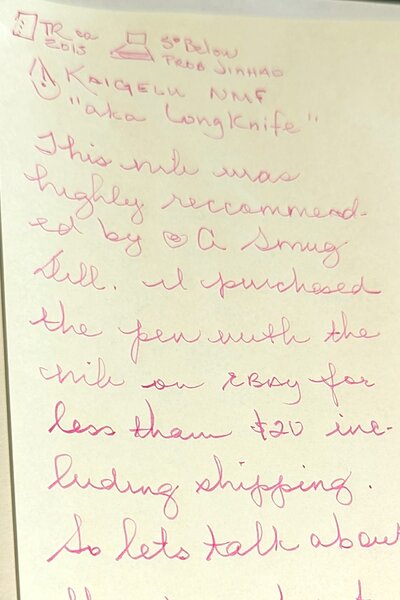 TR ca 5° Below
2015 Prob Jinhao
KAIGELU NMF
"aka LongKnife"
This nib was
highly reccommend-
ed by A Smug
Dill. I purchased
the pen with the
nib on EBAY for
less than $20 inc-
luding shipping.
So lets talk about